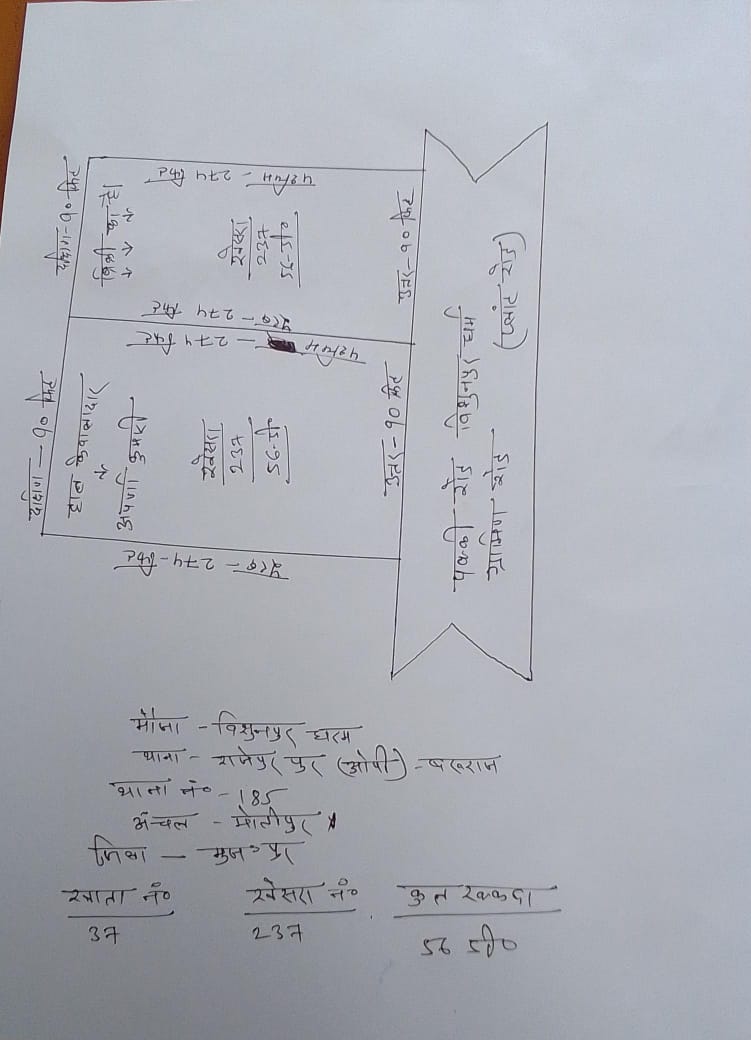 दक्षिण-90 फिट
पश्चिम - 274 फिट
बिक्री का है।
खेसरा
237
56-डी०
उत्तर-90 फिट
पूरब - 274 फिट
दक्षिण - 90 फिट
पश्चिम - 274 फिट
हाल केवालादार
अपर्णा कुमारी
खेसरा
237
56-डी०
उत्तर-90 फिट
पूरब - 274-फिट
पक्की रोड विशुनपुर धर्म
ग्रामिण रोड (प्लांट रोड)
मौजा - विशुनपुर धरम
थाना - राजेपुर पुर (ओपी) - बरूराज
थाना नं० - 185
अंचल - मोतीपुर
जिला - मुज० पुर
खाता नं० खेसरा नं० कुल रकबा
37 237 56 डी०